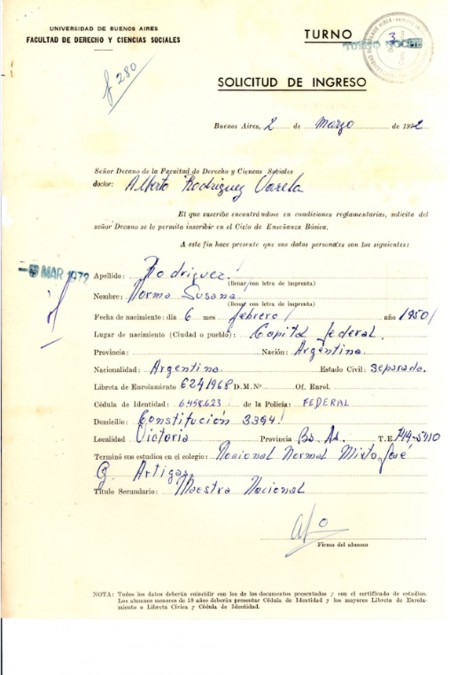 UNIVERSIDAD DE BUENOS AIRES
FACULTAD DE DERECHO Y CIENCIAS SOCIALES
TURNO 3
TURNO NOCHE
f 280
SOLICITUD DE INGRESO
Buenos Aires, 2 de marzo de 1972
Señor Decano de la Facultad de Derecho y Ciencias Sociales
doctor: Alberto Rodriguez Varela
El que suscribe encontrándose en condiciones reglamentarias, solicita del
señor Decano se le permita inscribir en el Ciclo de Enseñanza Básica.
A este fin hace presente que sus datos personales son los siguientes:
MAR 1972
Apellido: Rodriguez
(llenar con letra de imprenta)
Nombre: Norma Susana
(llenar con letra de imprenta)
Fecha de nacimiento: día 6 mes febrero año 1950
Lugar de nacimiento (Ciudad o pueblo): Capital federal
Provincia: Nación: Argentina
Nacionalidad: Argentina Estado Civil: Separada
Libreta de Enrolamiento 6241968 D.M.Nº Of. Enrol.
Cédula de Identidad: 6.458.623 de la Policía: FEDERAL
Domicilio: Constitución 3394
Localidad Victoria Provincia Bs. As. T.E. 744-5410
Terminó sus estudios en el colegio: Nacional Normal Mixto José
G. Artigas
Título Secundario: Maestra Nacional
Firma del alumno
NOTA: Todos los datos deberán coincidir con los de los documentos presentados y con el certificado de estudios.
Los alumnos menores de 18 años deberán presentar Cédula de Identidad y los mayores Libreta de Enrola-
miento o Libreta Cívica y Cédula de Identidad.